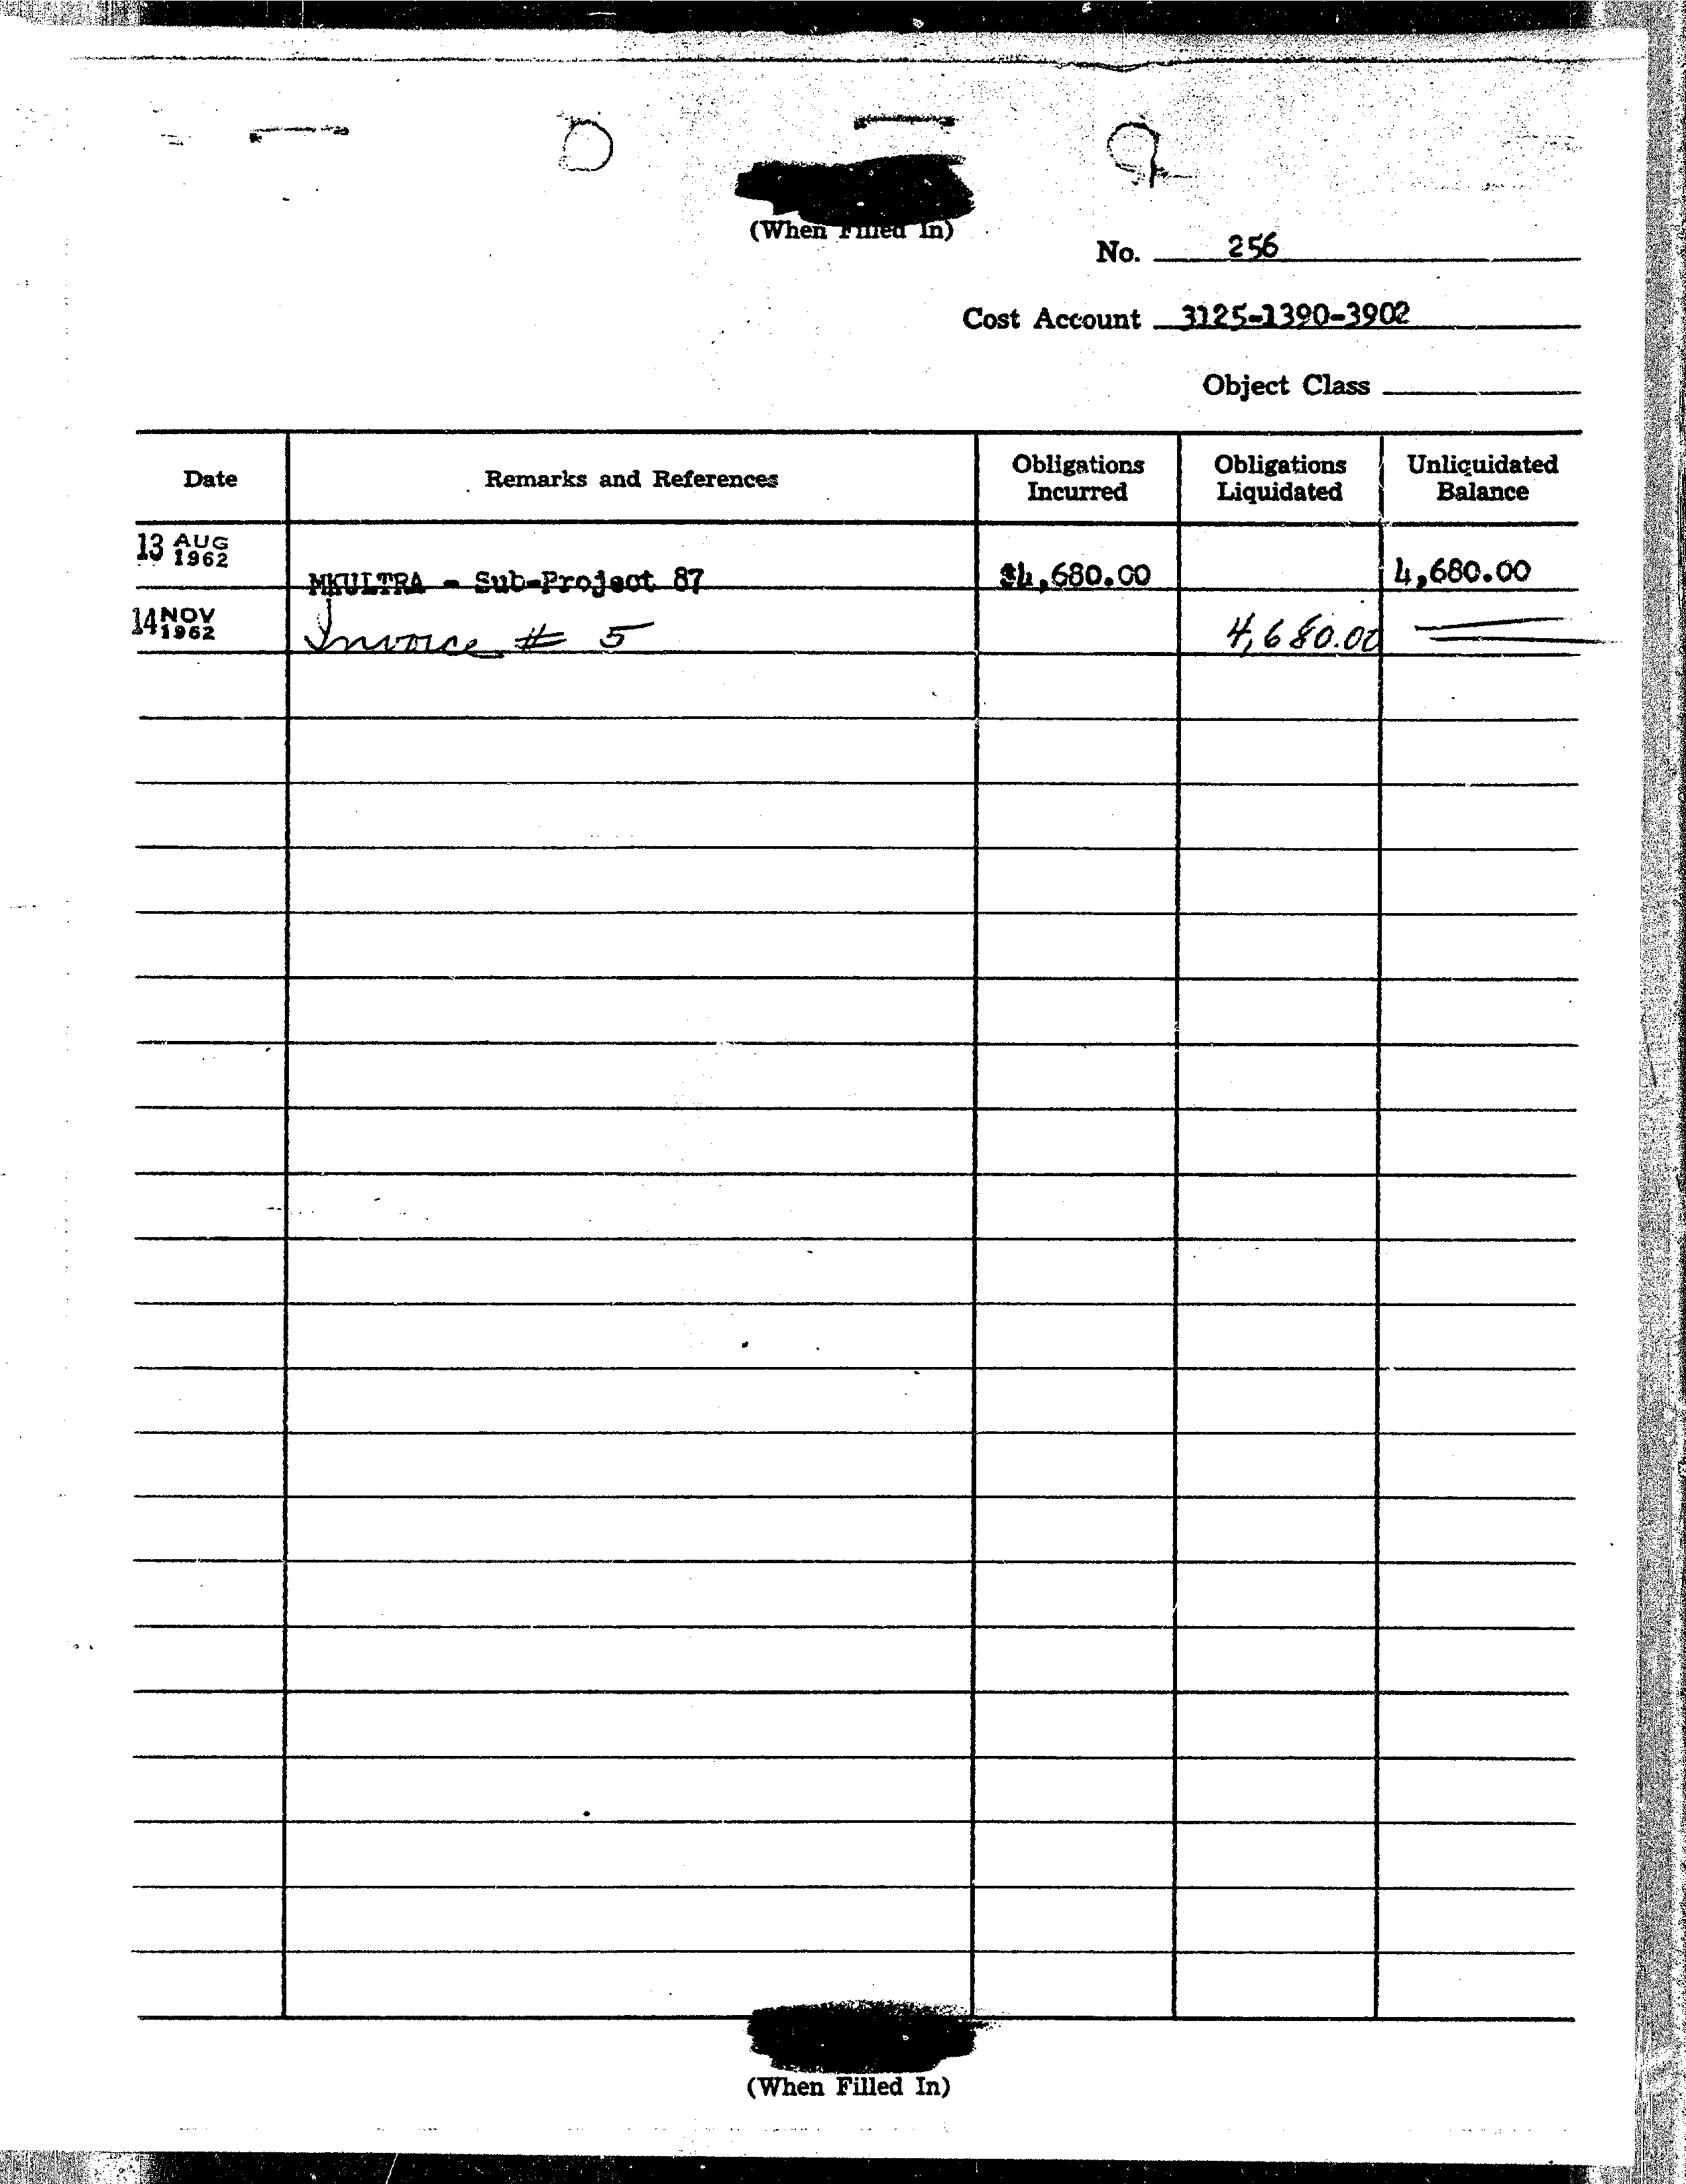 (When Filled In)
No. 256
Cost Account 3125-1390-3902
Object Class
Date Remarks and References Obligations Incurred Obligations Liquidated Unliquidated Balance
13 AUG 1962 MKULTRA - Sub-Project 87 $4,680.00 4,680.00
14 NOV 1962 Invoice # 5 4,680.00
(When Filled In)